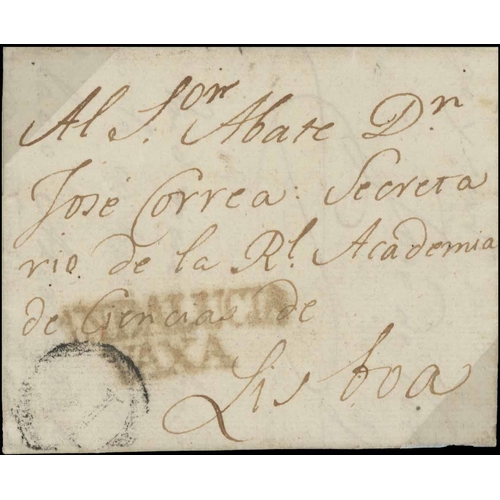 Al S.ore Abate Dn
José Correa: Secreta
rio de la Rl. Academia
de Ciencias de
Lisboa